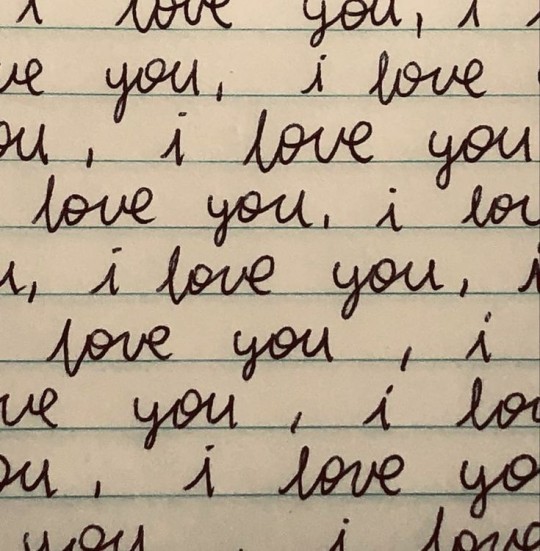 i love you, i
ve you, i love
ou, i love you
love you, i lov
u, i love you, i
love you , i
ve you , i lov
ou, i love yo
you , i love